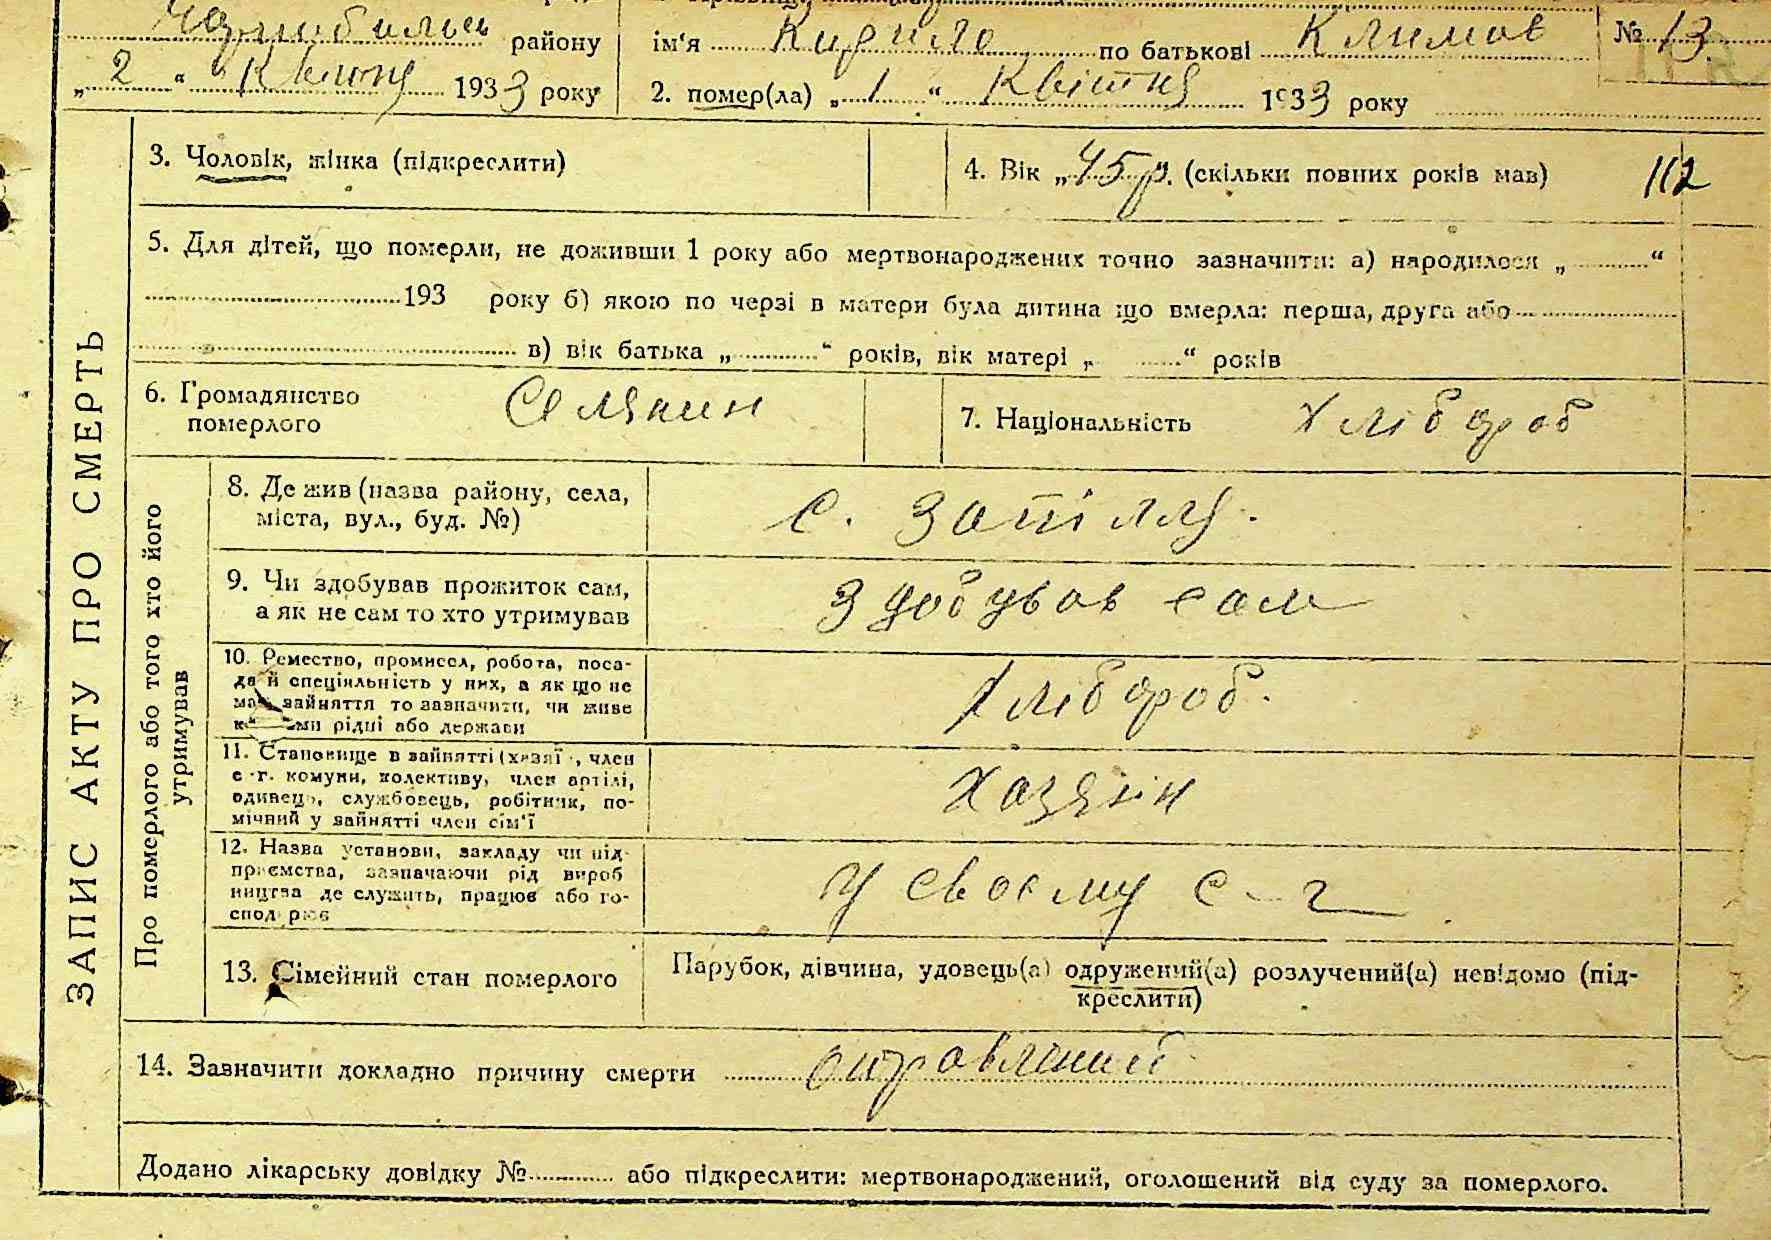 району ім'я Кирило по батькові Климов № 13.
„ 2 “ 1933 року 2. помер(ла) „ 1 “ Квітня 1933 року
3. Чоловік, жінка (підкреслити) 4. Вік „45 р. (скільки повних років мав) 112
5. Для дітей, що померли, не доживши 1 року або мертвонароджених точно зазначити: а) народилося „ “
193 року б) якою по черзі в матери була дитина що вмерла: перша, друга або
в) вік батька „ “ років, вік матері „ “ років
6. Громадянство померлого Селянин 7. Національність хлібороб
ЗАПИС АКТУ ПРО СМЕРТЬ
Про померлого або того хто його утримував
8. Де жив (назва району, села,
міста, вул., буд. №) с. Запілля.
9. Чи здобував прожиток сам,
а як не сам то хто утримував здобував сам
10. Ремество, промисел, робота, поса-
да й спеціяльність у них, а як що не
має зайняття то зазначити, чи живе
рідні або держави хлібороб.
11. Становище в зайнятті (хазяї , член
с-г. комуни, колективу, член артілі,
одинець, службовець, робітник, по-
мічний у зайнятті член сім'ї хазяїн
12. Назва установи, закладу чи під-
приємства, зазначаючи рід вироб
ництва де служить, працює або го-
сподарює у своєму с-г
13. Сімейний стан померлого Парубок, дівчина, удовець(а) одружений(а) розлучений(а) невідомо (під-
креслити)
14. Зазначити докладно причину смерти отравлений
Додано лікарську довідку № або підкреслити: мертвонароджений, оголошений від суду за померлого.